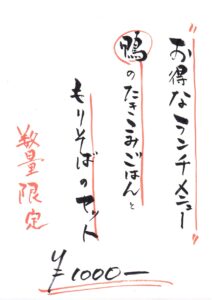 "お得なランチメニュー"
鴨のたきこみごはんと
もりそばのセット
数量限定
¥1000ー